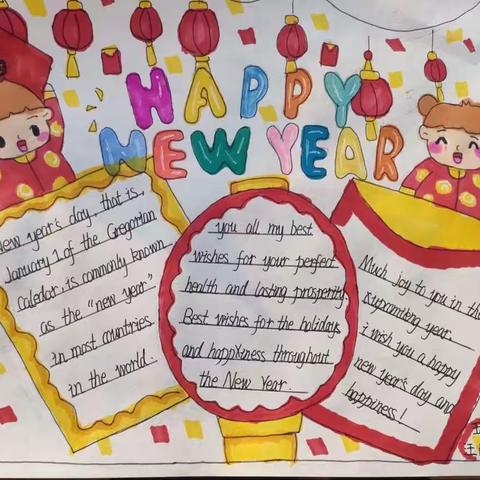 HAPPY
NEW YEAR
New year's day, that is,
January 1 of the Gregorian
Caledar, is commonly known
as the "new year"
in most countries
in the world.
you all my best
wishes for your perfect
health and lasting prosperity
Best wishes for the holidays
and happitiness throughout
the New Year.
Much joy to you in the
upcoming year.
i wish you a happy
new year's day and
happiness!